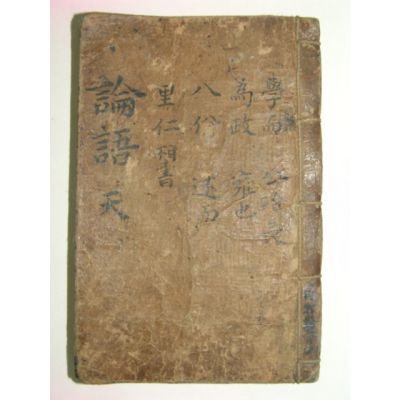 學而 公冶長
為政 雍也
八佾 述而
里仁
論語 天